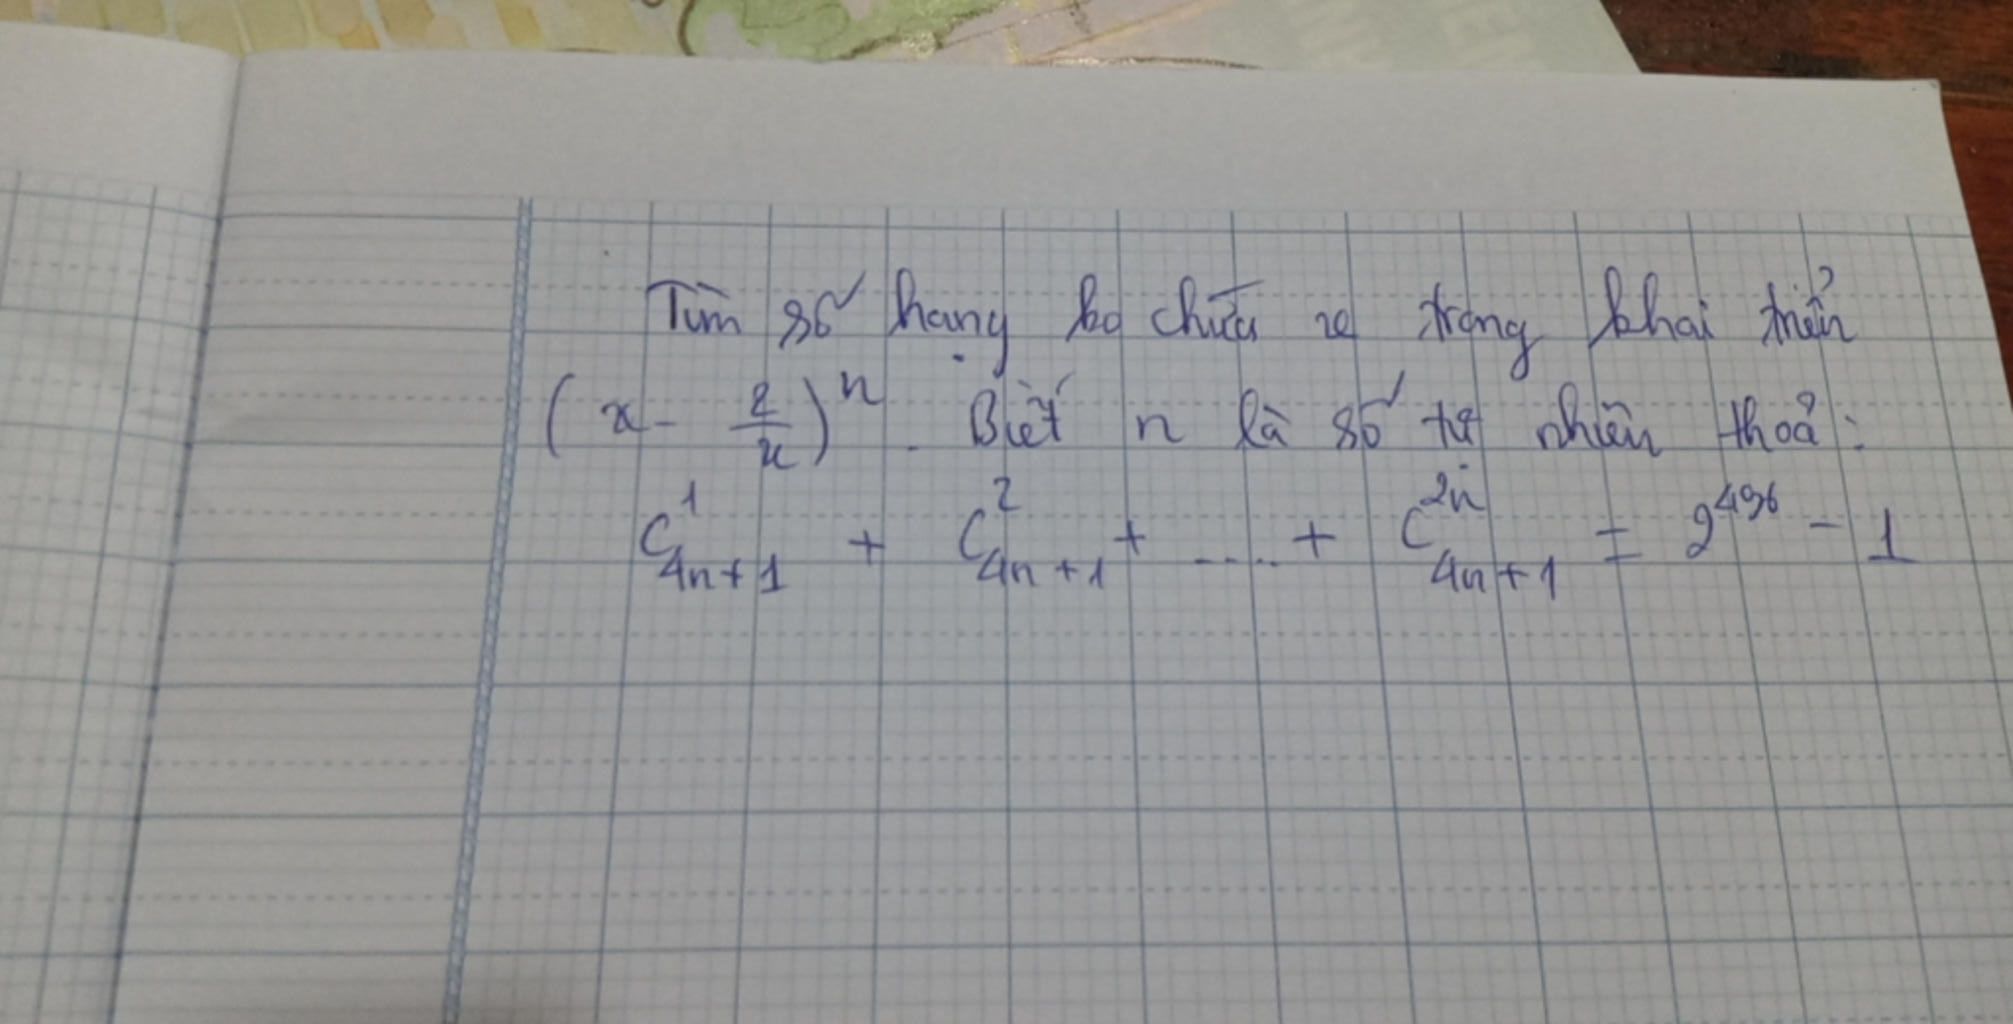 Tìm số hạng ko chứa x trong khai triển
(x - 2/x)^n. Biết n là số tự nhiên thoả:
C^1_{4n+1} + C^2_{4n+1} + ..... + C^{2n}_{4n+1} = 2^{496} - 1